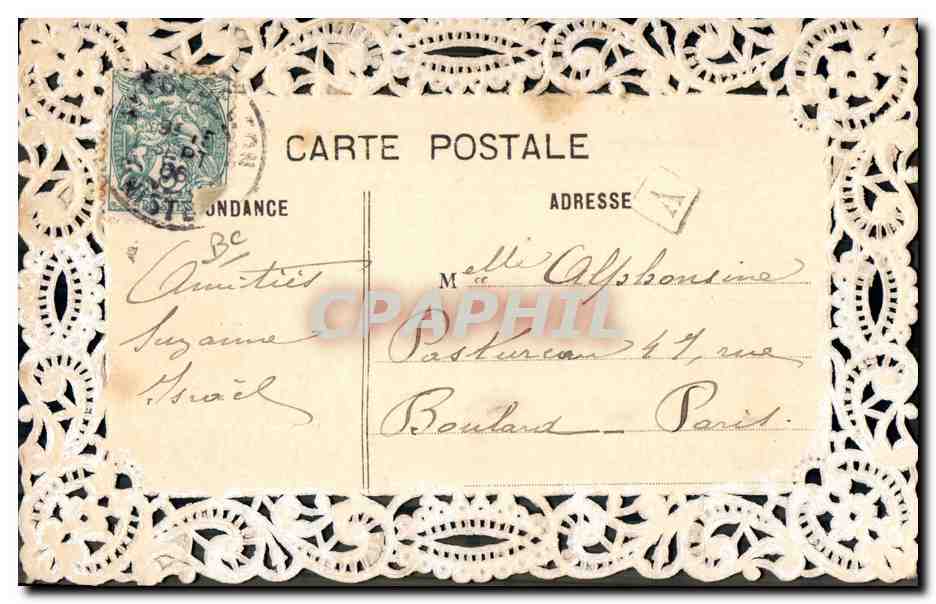 CARTE POSTALE
ONDANCE
ADRESSE
A
Bc
Amitiés
Suzanne
Israël
Melle Alphonsine
Pastureau 47, rue
Boulard - Paris.
CPAPHIL